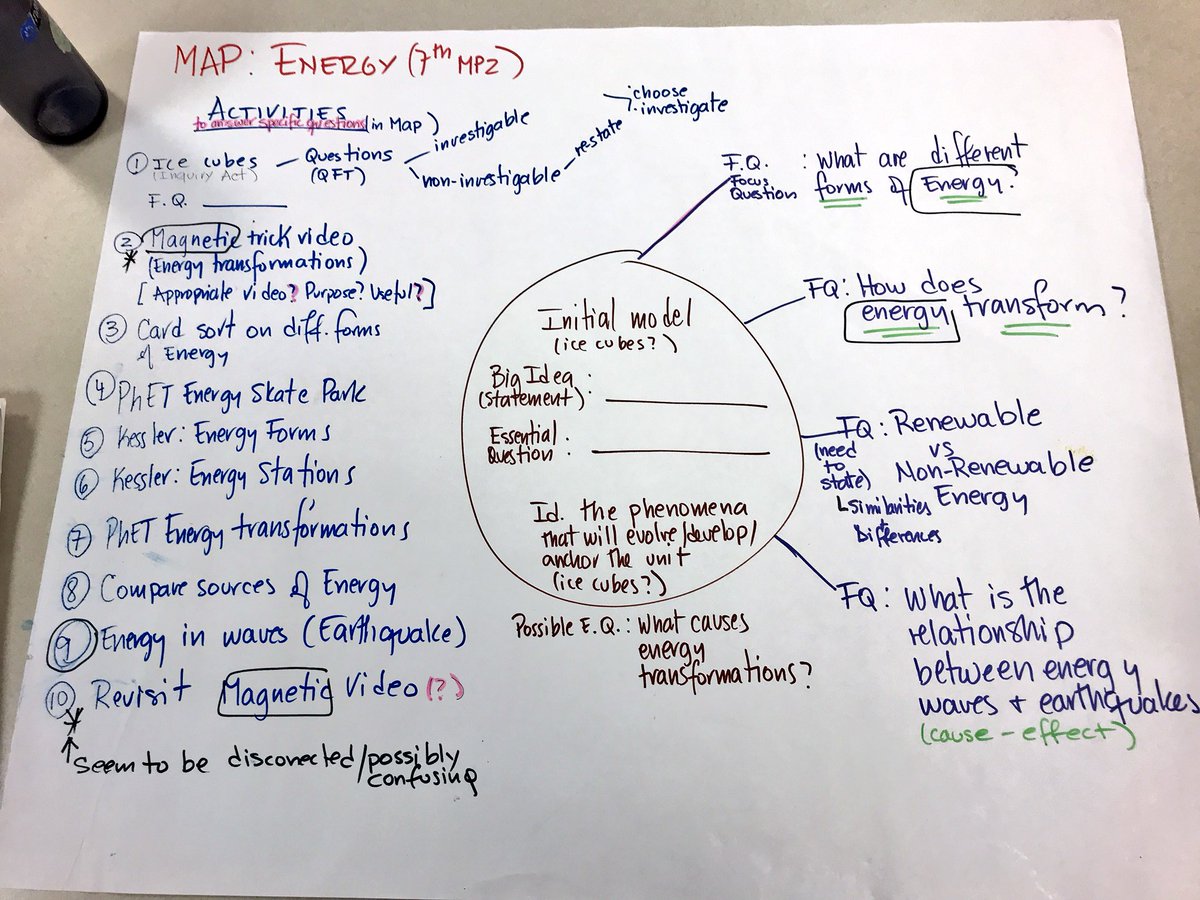 MAP: ENERGY (7th MP2)
ACTIVITIES
to answer specific questions in Map)
① Ice cubes — Questions
(Inquiry Act) (QFT)
investigable
non-investigable
re-state
choose
investigate
F.Q.
② Magnetic trick video
* (Energy transformations)
[Appropriate video? Purpose? Useful?]
③ Card sort on diff. forms
of Energy
④ PhET Energy Skate Park
⑤ Kessler: Energy Forms
⑥ Kessler: Energy Stations
⑦ PhET Energy transformations
⑧ Compare sources of Energy
⑨ Energy in waves (Earthquake)
⑩ Revisit Magnetic Video (?)
* ↑ Seem to be disconected/possibly
confusing
Initial model
(ice cubes?)
Big Idea :
(statement):
Essential
Question:
Id. the phenomena
that will evolve/develop/
anchor the unit
(ice cubes?)
Possible E.Q.: What causes
energy
transformations?
F.Q. : What are different
Focus
Question
forms of Energy?
FQ: How does
energy transform?
FQ: Renewable
(need
to
state)
vs
Non-Renewable
Energy
Similarities
+
Differences
FQ: What is the
relationship
between energy
waves + earthquakes
(cause - effect)